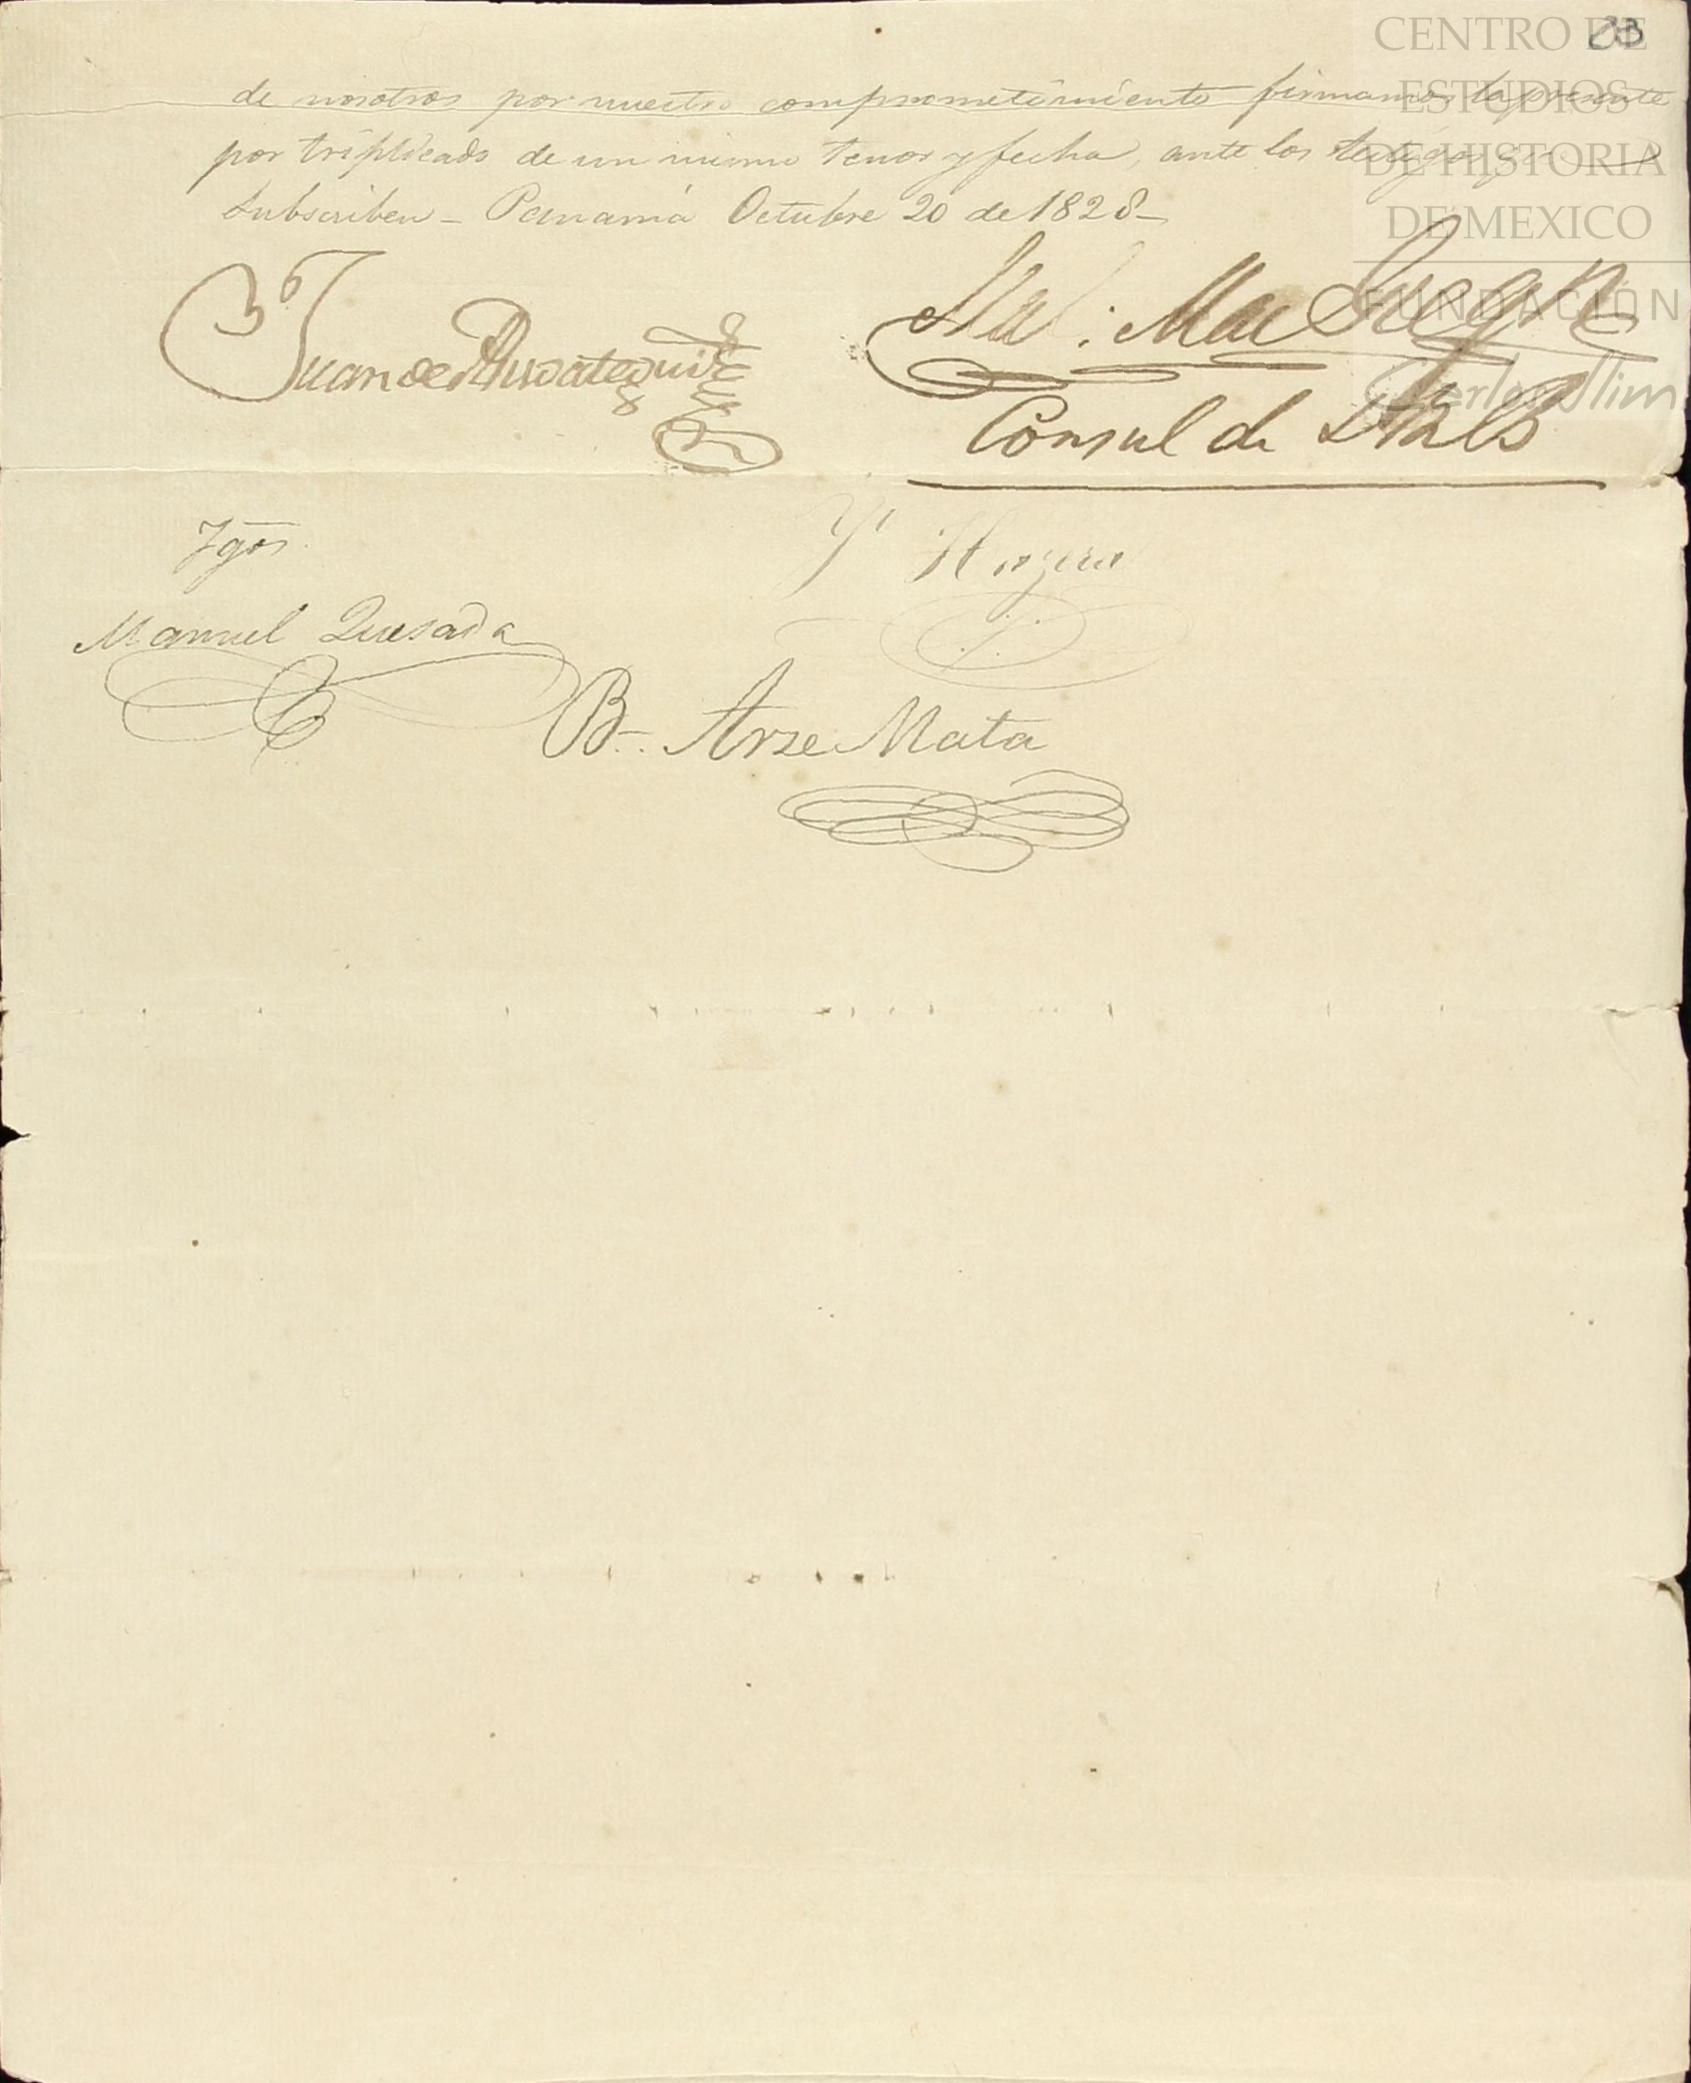 de nosotros por nuestro comprometimiento firmamos la presente
por triplicado de un mismo tenor y fecha, ante los testigos q.e
subscriben - Panamá Octubre 20 de 1828 -
Juan de
Mal: MacGregor
Consul de S M B
Tgos.
Manuel Quesada
B. Arze Mata
CENTRO DE
ESTUDIOS
DE HISTORIA
DE MEXICO
FUNDACIÓN
Carlos Slim